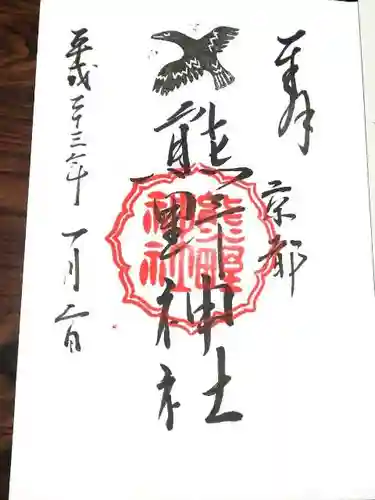 奉拝
京都
熊野神社
熊野
神社
平成二十三年一月二日